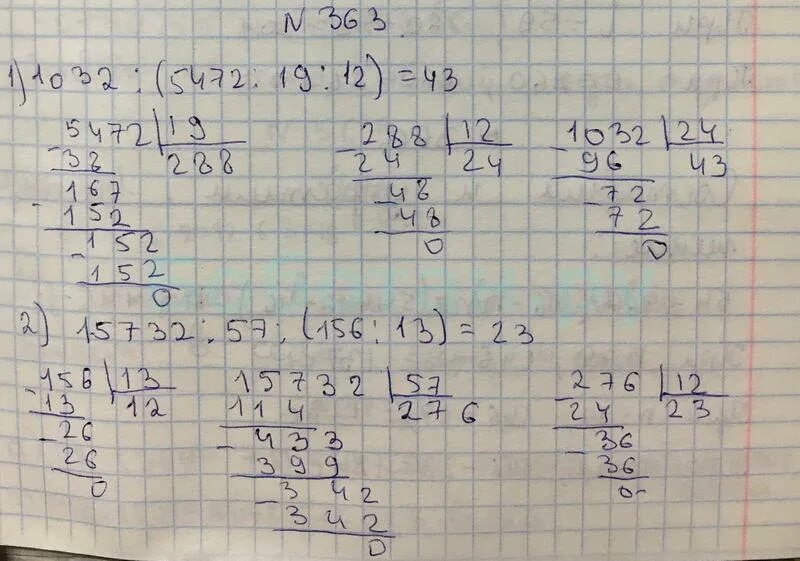 N 363.
1) 1032 : (5472 : 19 : 12) = 43
5472 | 19
- 38 288
167
- 152
152
- 152
0
- 288 | 12
24 24
- 48
48
0
- 1032 | 24
96 43
- 72
72
0
2) 15732 : 57 : (156 : 13) = 23
- 156 | 13
13 12
- 26
26
0
15732 | 57
114 276
- 433
399
- 342
342
0
- 276 | 12
24 23
- 36
36
0